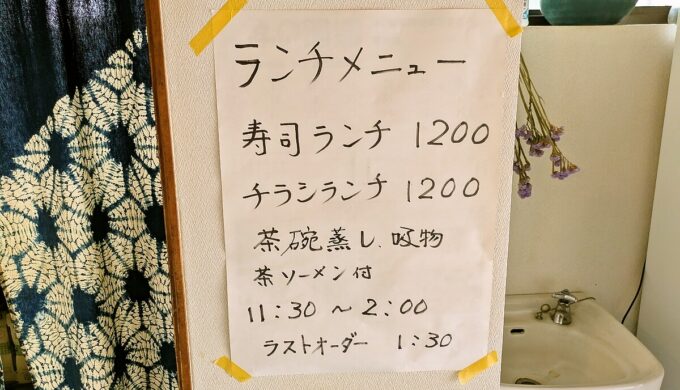 ランチメニュー
寿司ランチ 1200
チラシランチ 1200
茶碗蒸し、吸物
茶ソーメン付
11:30 ～ 2:00
ラストオーダー 1:30